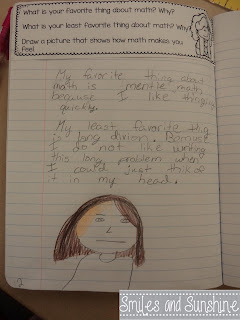 What is your favorite thing about math? Why?
What is your least favorite thing about math? Why?
Draw a picture that shows how math makes you
feel.
My favorite thing about
math is mentle math
because I like thinging
quickly.
My least favorite thig
is long divion. Becuse
I do not like writing
this long problem when
I could just think of
it in my head.
Smiles and Sunshine